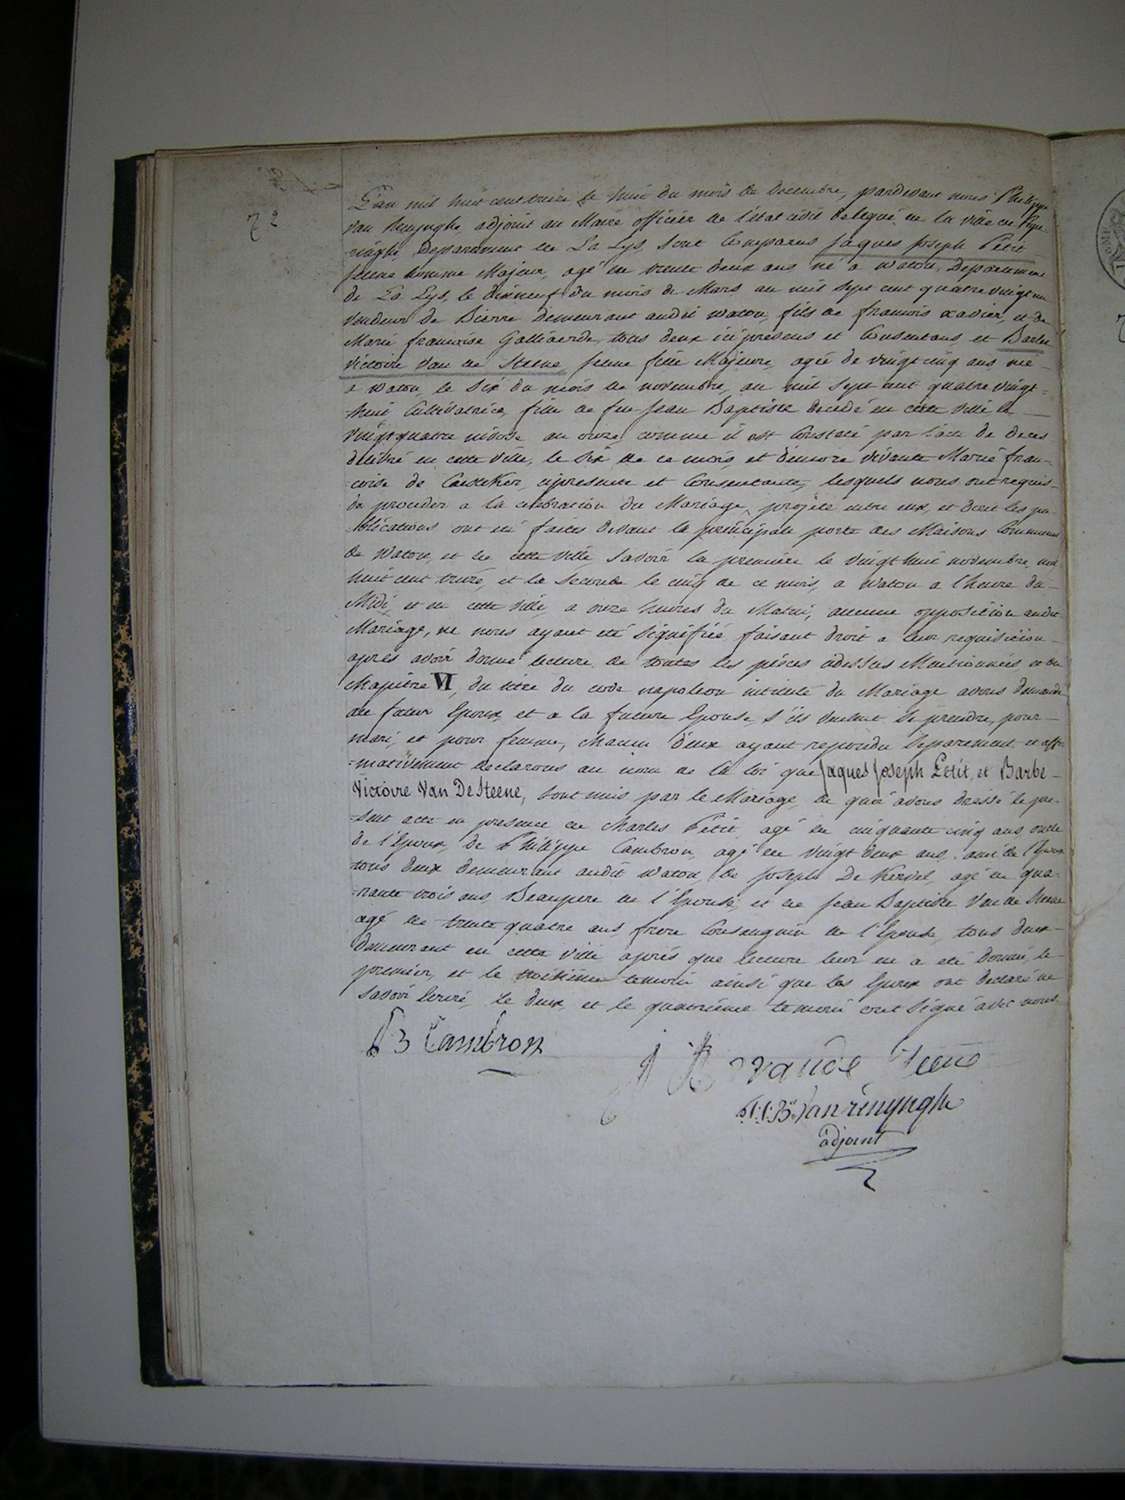 72
L'an mil huit cent treize le huit du mois de Decembre, pardevant nous Philippe
van Renynghe adjoint au Maire officier de l'état civil delegué de la ville de Pope-
ringhe Departement de La Lys, sont Comparus Jaques Joseph Petit
Jeune homme Majeur, agé de trente deux ans né a Watou, Departement
de La Lys, le dixneuf du mois de Mars an mil sept cent quatre vingt un
Vendeur de Bierre demeurant audit Watou, fils de francois xavier, et de
Marie francoise Galliaerde, tous deux ici presens et Consentans et Barbe
Victoire Van de Steene, Jeune fille Majeure, agée de vingt cinq ans née
a Watou, le Six du mois de novembre, an mil sept cent quatre vingt-
huit Cultivatrice, fille de feu Jean Baptiste decedé en cette ville le
vingtquatre nivose an onze comme il est Constaté par l'acte de deces
délivré en cette ville, le Six de ce mois, et d'encore vivante Marie fran-
coise de Caesteker, cipresente et Consentante, lesquels nous ont requis
de proceder a la celebration du Mariage, projeté entre eux, et dont les pu-
blications ont été faites devant la principale porte des Maisons Communes
de Watou, et de cette ville Savoir la première le vingt huit novembre, mil
huit cent treize, et la Seconde le cinq de ce mois, a Watou a l'heure du
Midi, et en cette ville, a onze heures du Matin, aucune opposition audit
Mariage, ne nous ayant été Signifiée, faisant droit a leur requisition
après avoir donné lecture de toutes les pièces cidessus Mentionnées et du
Chapitre VI, du titre du code napoleon intitulé du Mariage avons demandé
au futur Epoux, et a la future Epouse S'ils veulent Se prendre, pour
mari, et pour femme, chacun d'eux ayant repondu Separement et affir-
mativement declarons au nom de la loi que Jaques Joseph Petit, et Barbe
Victoire Van De Steene, sont unis par le Mariage, de quoi avons dressé le pre-
sent acte en presence de Charles Petit, agé de cinquante cinq ans oncle
de l'Epoux, de Philippe Cambron, agé de vingt deux ans, ami de l'Epoux
tous deux demeurant audit Watou, de Joseph De Kervel, agé de qua-
rante trois ans Beaupere de l'Epouse, et de Jean Baptiste Van de Steene
agé de trente quatre ans frere Consanguin de l'Epouse, tous deux
demeurant en cette ville après que lecture leur en a été donné, le
premier, et le troisième temoin ainsi que les Epoux ont declaré ne
savoir écrire, le deux, et le quatrième temoin ont Signé avec nous
Cambron
vande Steene
Van renynghe
adjoint